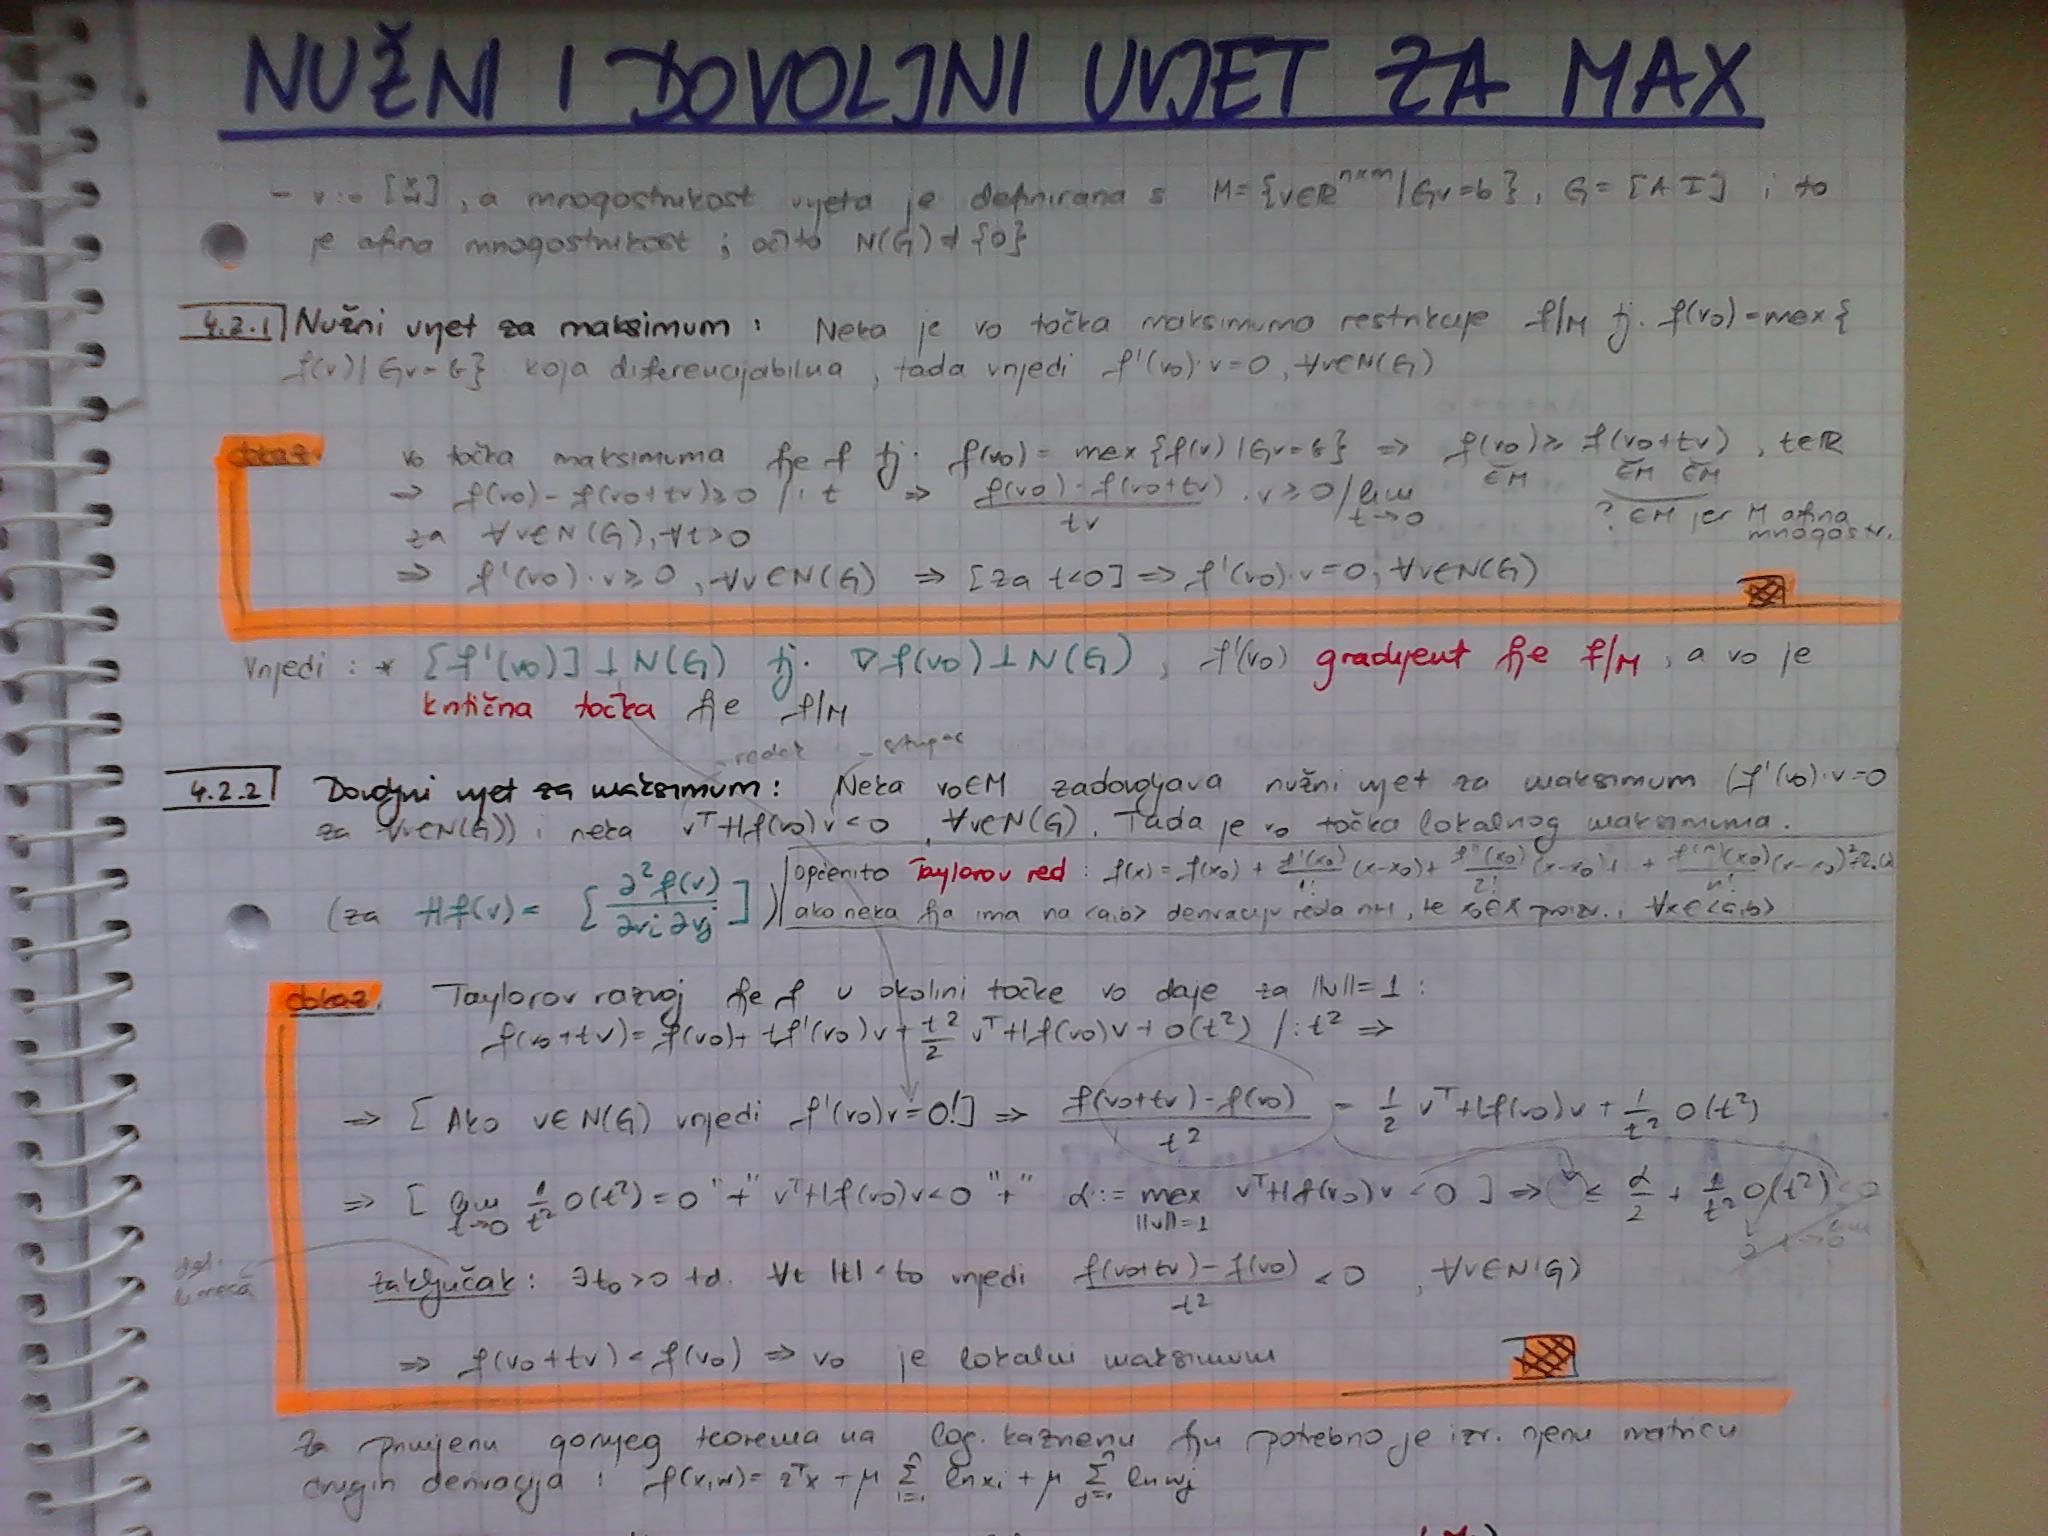 NUŽNI I DOVOLJNI UVJET ZA MAX
- v := [x w], a mnogostrukost uvjeta je definirana s M = {v∈R^{n×m} | Gv=b}, G = [A I] i to
je afina mnogostrukost; očito N(G) ≠ {0}
4.2.1 Nužni uvjet za maksimum: Neka je v0 točka maksimuma restrikcije f/M tj. f(v0) = max {
f(v) | Gv=b} koja diferencijabilna, tada vrijedi f'(v0)·v=0, ∀v∈N(G)
dokaz. v0 točka maksimuma fje f tj. f(v0) = max {f(v) | Gv=b} ⇒ f(v0) ≥ f(v0+tv), t∈R
∈M ∈M ∈M
⇒ f(v0) - f(v0+tv) ≥ 0 /: t ⇒ (f(v0) - f(v0+tv))/tv · v ≥ 0 / lim t→0
? ∈M jer M afina mnogostr.
za ∀v∈N(G), ∀t>0
⇒ f'(v0)·v ≥ 0, ∀v∈N(G) ⇒ [za t<0] ⇒ f'(v0)·v=0, ∀v∈N(G)
Vrijedi: * [f'(v0)] ⊥ N(G) tj. ∇f(v0) ⊥ N(G), f'(v0) gradijent fje f/M, a v0 je
kritična točka fje f/M
- redak - stupac
4.2.2 Dovoljni uvjet za maksimum: Neka v0∈M zadovoljava nužni uvjet za maksimum (f'(v0)·v=0
za ∀v∈N(G)) i neka v^T Hf(v0) v < 0, ∀v∈N(G). Tada je v0 točka lokalnog maksimuma.
(za Hf(v) = [∂²f(v)/∂vi∂vj])
Općenito Taylorov red: f(x) = f(x0) + f'(x0)/1! (x-x0) + f''(x0)/2! (x-x0) + + f^(n)(x0)/n! (x-x0)
ako neka fja ima na <a,b> derivaciju reda n+1, te x0∈X proizv. i ∀x∈<a,b>
dokaz. Taylorov razvoj fje f u okolini točke v0 daje za ||v||=1:
f(v0+tv) = f(v0) + tf'(v0)v + t²/2 v^T Hf(v0)v + O(t²) /: t² ⇒
⇒ [Ako v∈N(G) vrijedi f'(v0)v=0!] ⇒ (f(v0+tv) - f(v0))/t² = 1/2 v^T Hf(v0)v + 1/t² O(t²)
⇒ [lim t→0 1/t² O(t²) = 0 "+" v^T Hf(v0)v < 0 "+" α := max ||v||=1 v^T Hf(v0)v < 0] ⇒ ≤ α/2 + 1/t² O(t²) < 0
zaključak: ∃t0>0 td. ∀t |t|<t0 vrijedi (f(v0+tv) - f(v0))/t² < 0, ∀v∈N(G)
⇒ f(v0+tv) < f(v0) ⇒ v0 je lokalni maksimum
Za primjenu gornjeg teorema na log. kaznenu fju potrebno je izr. njenu matricu
drugih derivacija: f(x,w) = z^T x + μ Σ i=1 ln xi + μ Σ j=1 ln wj